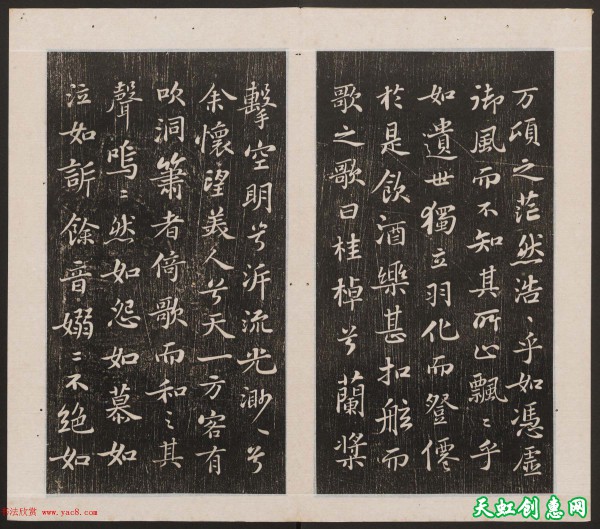 万頃之茫然浩〻乎如馮虛
御風而不知其所止飄〻乎
如遺世獨立羽化而登僊
於是飲酒樂甚扣舷而
歌之歌曰桂棹兮蘭槳
擊空明兮泝流光渺〻兮
余懷望美人兮天一方客有
吹洞簫者倚歌而和之其
聲嗚〻然如怨如慕如
泣如訴餘音嫋〻不絕如
书法欣赏 www.yac8.com
天虹创惠网